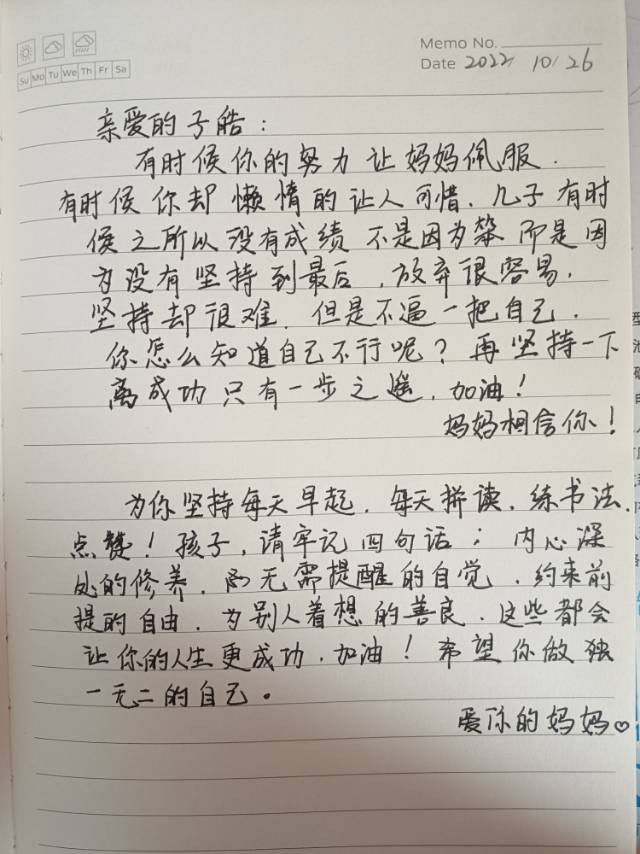 Memo No.
Date 2022 10/26
Su Mo Tu We Th Fr Sa
亲爱的子皓：
有时候你的努力让妈妈佩服.
有时候你却懒惰的让人可惜.儿子有时
候之所以没有成绩不是因为笨而是因
为没有坚持到最后,放弃很容易,
坚持却很难.但是不逼一把自己.
你怎么知道自己不行呢？再坚持一下
离成功只有一步之遥.加油！
妈妈相信你！
为你坚持每天早起.每天拼读.练书法.
点赞！孩子,请牢记四句话；内心深
处的修养,而无需提醒的自觉.约束前
提的自由.为别人着想的善良.这些都会
让你的人生更成功.加油！希望你做独
一无二的自己。
爱你的妈妈♡